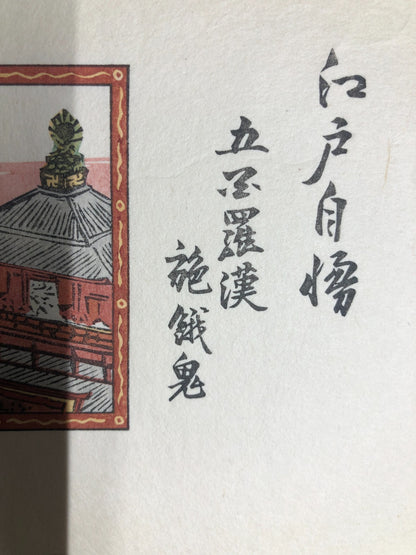 江戸自慢
五百羅漢
施餓鬼